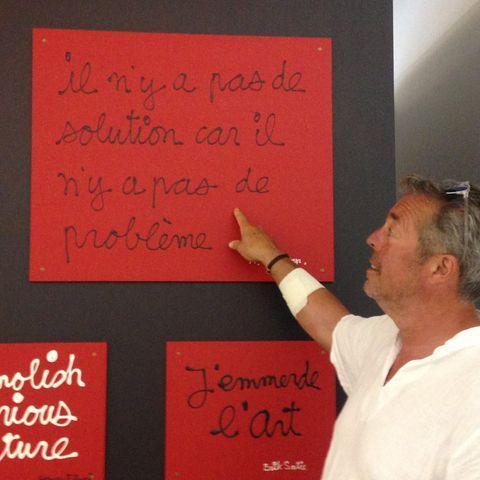 il n'y a pas de
solution car il
n'y a pas de
problème
serious
J'emmerde
l'art